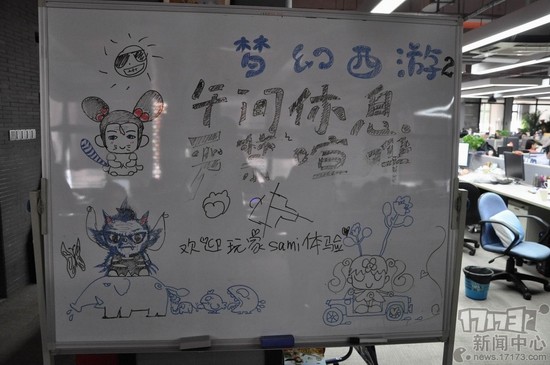 梦幻西游2
午间休息
严禁喧哗
欢迎玩家sami体验
17173
新闻中心
news.17173.com